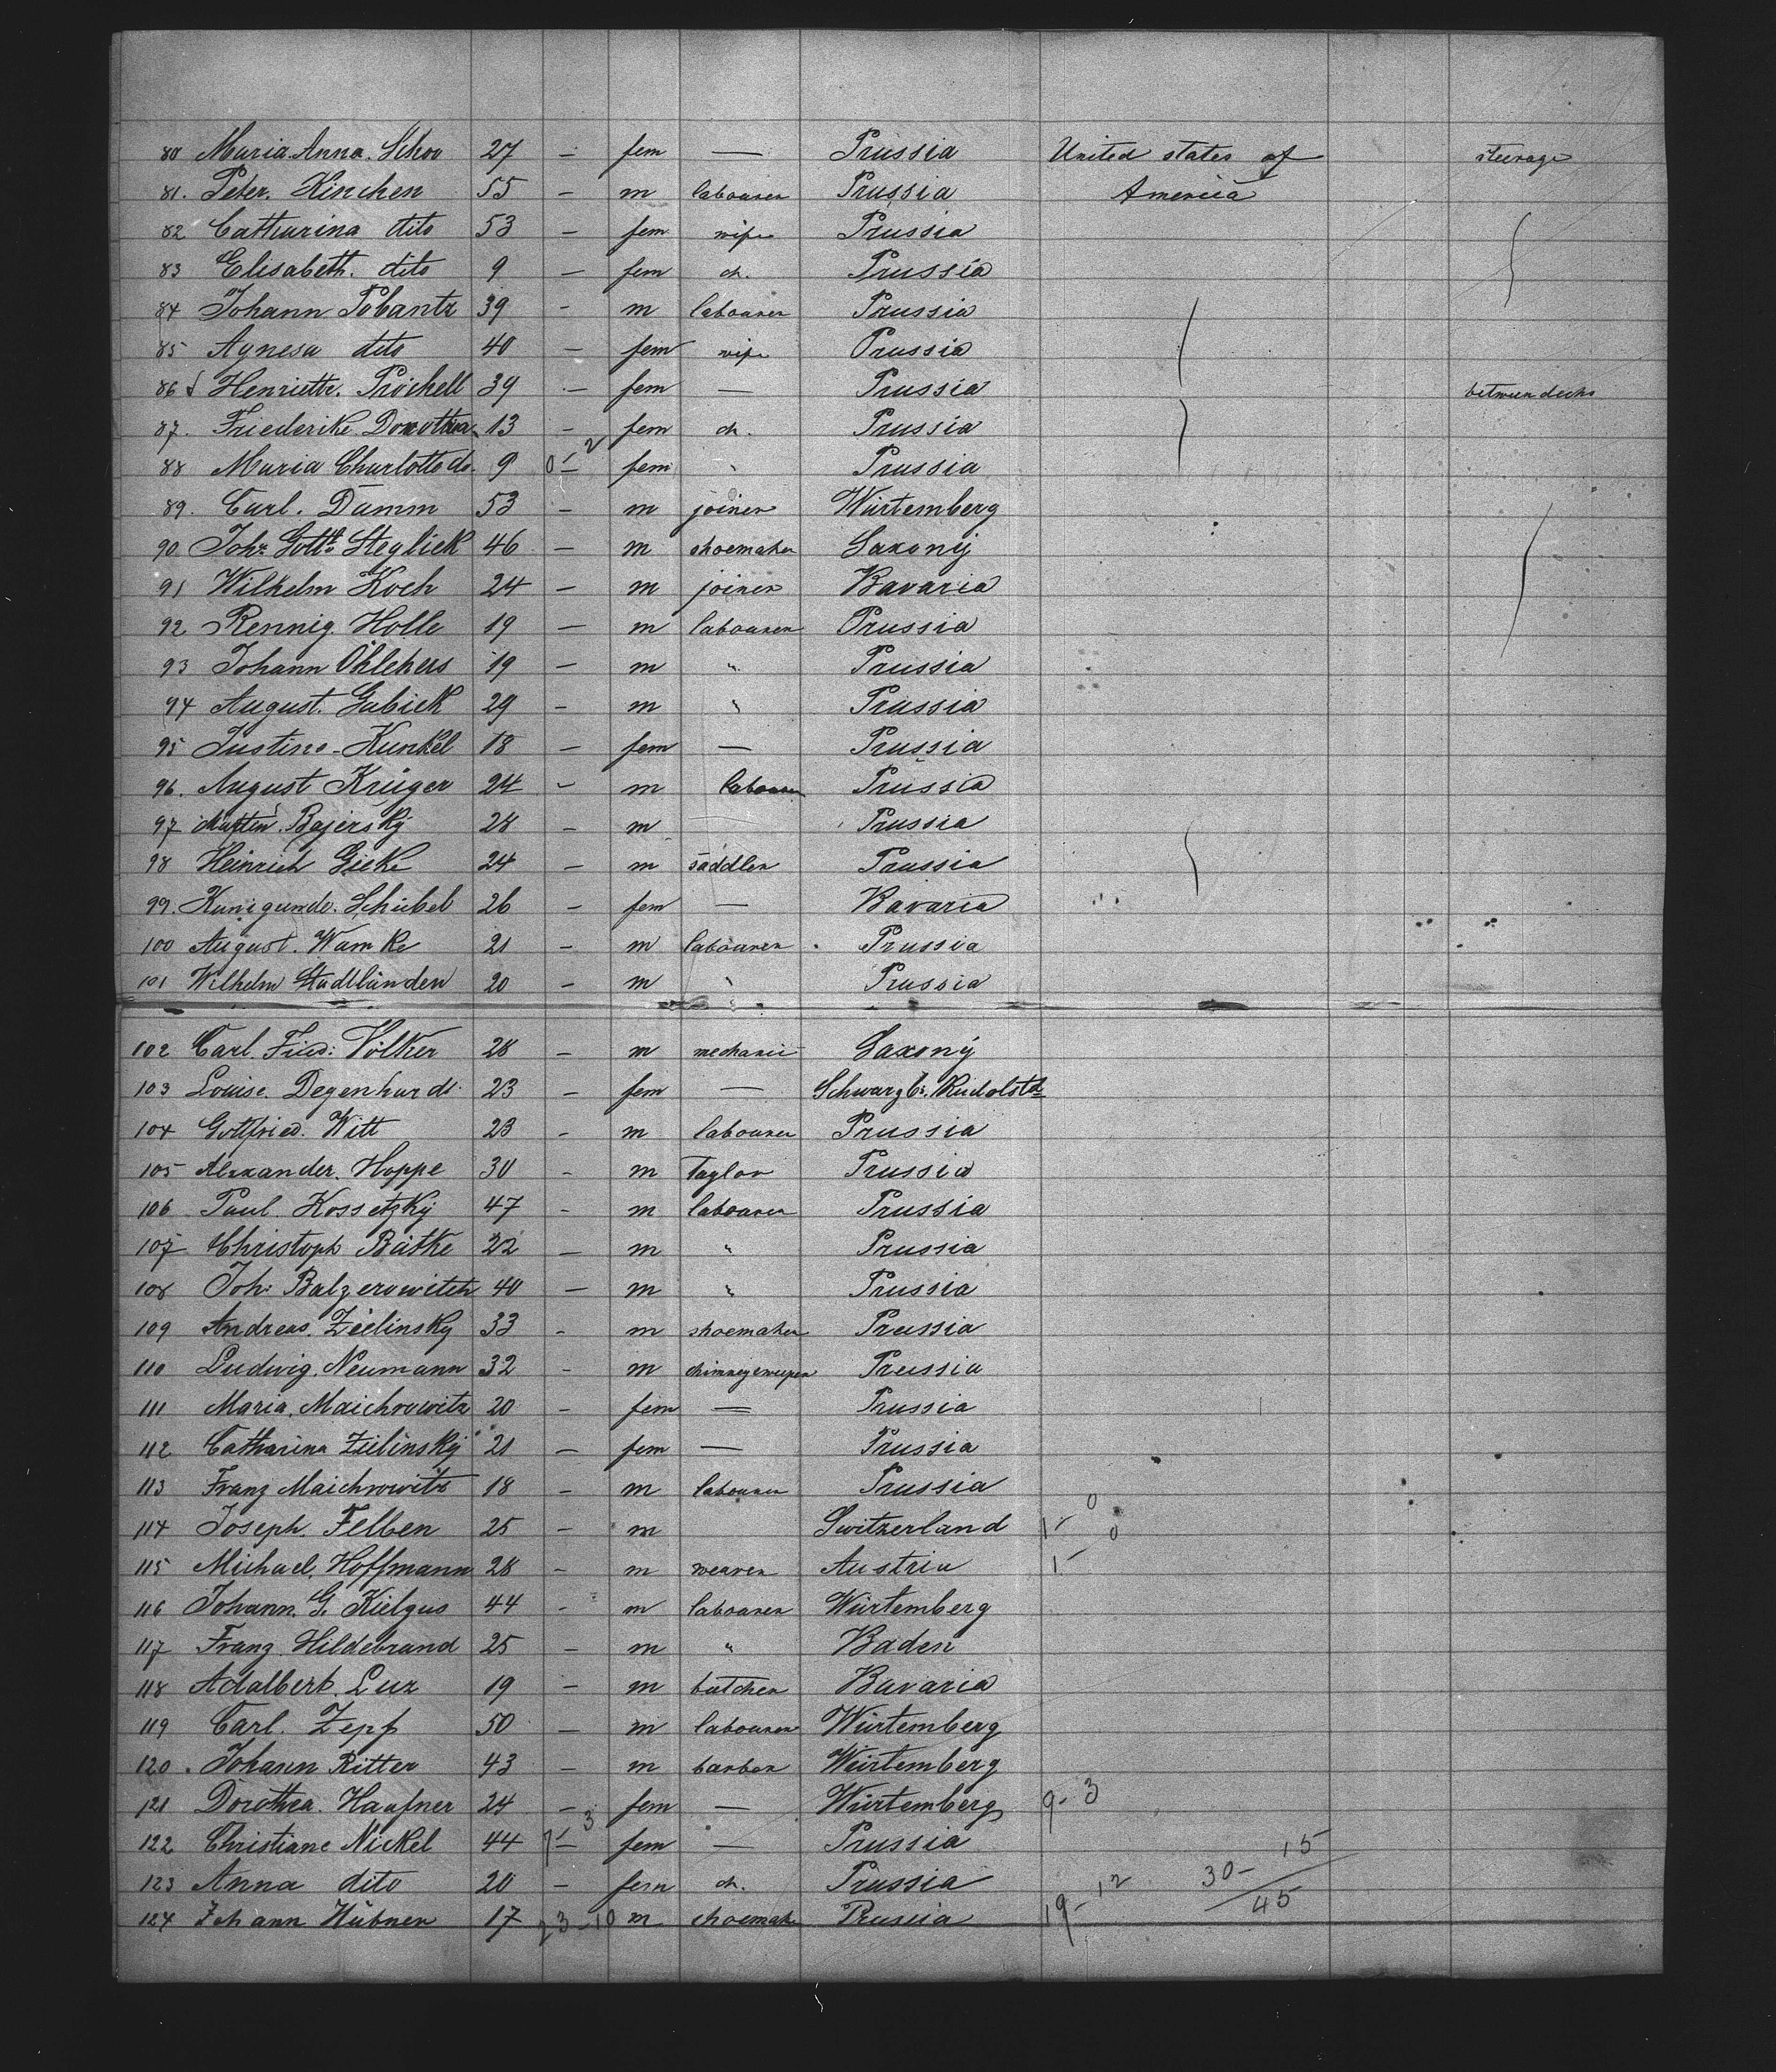 80 Maria Anna. Schoo 27 - fem — Prussia United states of steerage
81. Peter. Kinchen 55 - m labourer Prussia America
82 Catharina dito 53 - fem wife Prussia
83 Elisabeth. dito 9 - fem ch. Prussia
84 Johann Pobantz 39 - m labourer Prussia
85 Agnesa dito 40 - fem wife Prussia
86 Henriette. Pröchell 39 - fem — Prussia between decks
87. Friederike Dorothea 13 - fem ch. Prussia
88 Maria Charlotte do. 9 0 - 2 fem " Prussia
89. Carl. Damm 53 - m joiner Würtemberg
90. Johr Gottl. Steglick 46 - m shoemaker Saxony
91 Wilhelm Koch 24 - m joiner Bavaria
92 Rennig. Holle 19 - m labourer Prussia
93 Johann Öhlckers 19 - m " Prussia
94 August. Gubick 29 - m " Prussia
95 Justine Kunkel 18 - fem — Prussia
96. August Krüger 24 - m labourer Prussia
97 Bajersky 28 - m Prussia
98 Heinrich Gieke 24 - m saddler Prussia
99. Kunigunde. Schubel 26 - fem — Bavaria
100 August. Wamke 21 - m labourer Prussia
101 Wilhelm Stadtländer 20 - m " Prussia
102 Carl. Fried: Völker 28 - m mechanic Saxony
103 Louise. Degenhardt 23 - fem — Schwarzb. Rudolstd
104 Gottfried. Witt 23 - m labourer Prussia
105 Alexander. Hoppe 30 - m Taylor Prussia
106 Paul. Kossetzky 47 - m labourer Prussia
107 Christoph Bätke 22 - m " Prussia
108 Joh: Balzerowitch 40 - m " Prussia
109 Andreas. Zielinsky 33 - m shoemaker Prussia
110 Ludwig. Neumann 32 - m chimneysweeper Prussia
111 Maria. Maichrowitz 20 - fem — Prussia
112 Catharina Zielinsky 21 - fem — Prussia
113 Franz Maichrowitz 18 - m labourer Prussia 0
114 Joseph. Felben 25 - m Switzerland 1 - 0
115 Michael. Hoffmann 28 - m weaver Austria 1 -
116 Johann. G. Kielgus 44 - m labourer Würtemberg
117 Franz. Hildebrand 25 - m " Baden
118 Adalbert. Lux 19 - m butcher Bavaria
119 Carl. Zepf 50 - m labourer Würtemberg
120. Johann Ritter 43 - m barber Würtemberg
121 Dorothea. Haufner 24 - fem — Würtemberg 9 - 3
122 Christiane Nickel 44 7 - 3 fem — Prussia 30 - 15
123 Anna dito 20 - fem ch. Prussia 45
124 Johann Hübner 17 23 - 10 m shoemak Prussia 19 - 12